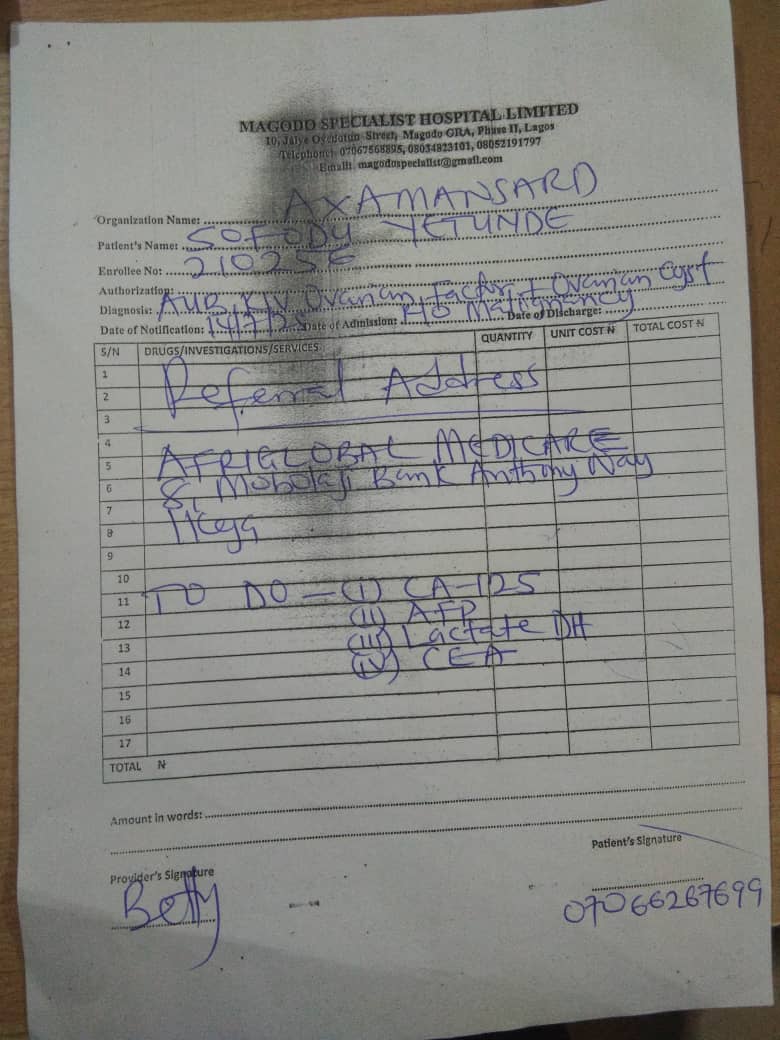 MAGODO SPECIALIST HOSPITAL LIMITED
10, Jaiye Oyedotun Street, Magodo GRA, Phase II, Lagos
Telephone: 07067568895, 08034823101, 08052191797
Email: magodospecialist@gmail.com
Organization Name: AXAMANSARD
Patient's Name: SOFODU YETUNDE
Enrollee No: 210256
Authorization:
Diagnosis: AUB, KIV Ovarian Factor, + Ovarian Cyst
Date of Notification: 14/7/25 Date of Admission: H/O Malignancy Date of Discharge:
S/N DRUGS/INVESTIGATIONS/SERVICES QUANTITY UNIT COST ₦ TOTAL COST ₦
1
2 Referral Address
3
4
5 AFRIGLOBAL MEDICARE
6 8, Mobolaji Bank Anthony Way
7
8 Ikeja
9
10
11 TO DO - (i) CA-125
12 (ii) AFP
13 (iii) Lactate DH
14 (iv) CEA
15
16
17
TOTAL ₦
Amount in words:
Patient's Signature
Provider's Signature
Betty
07066267699